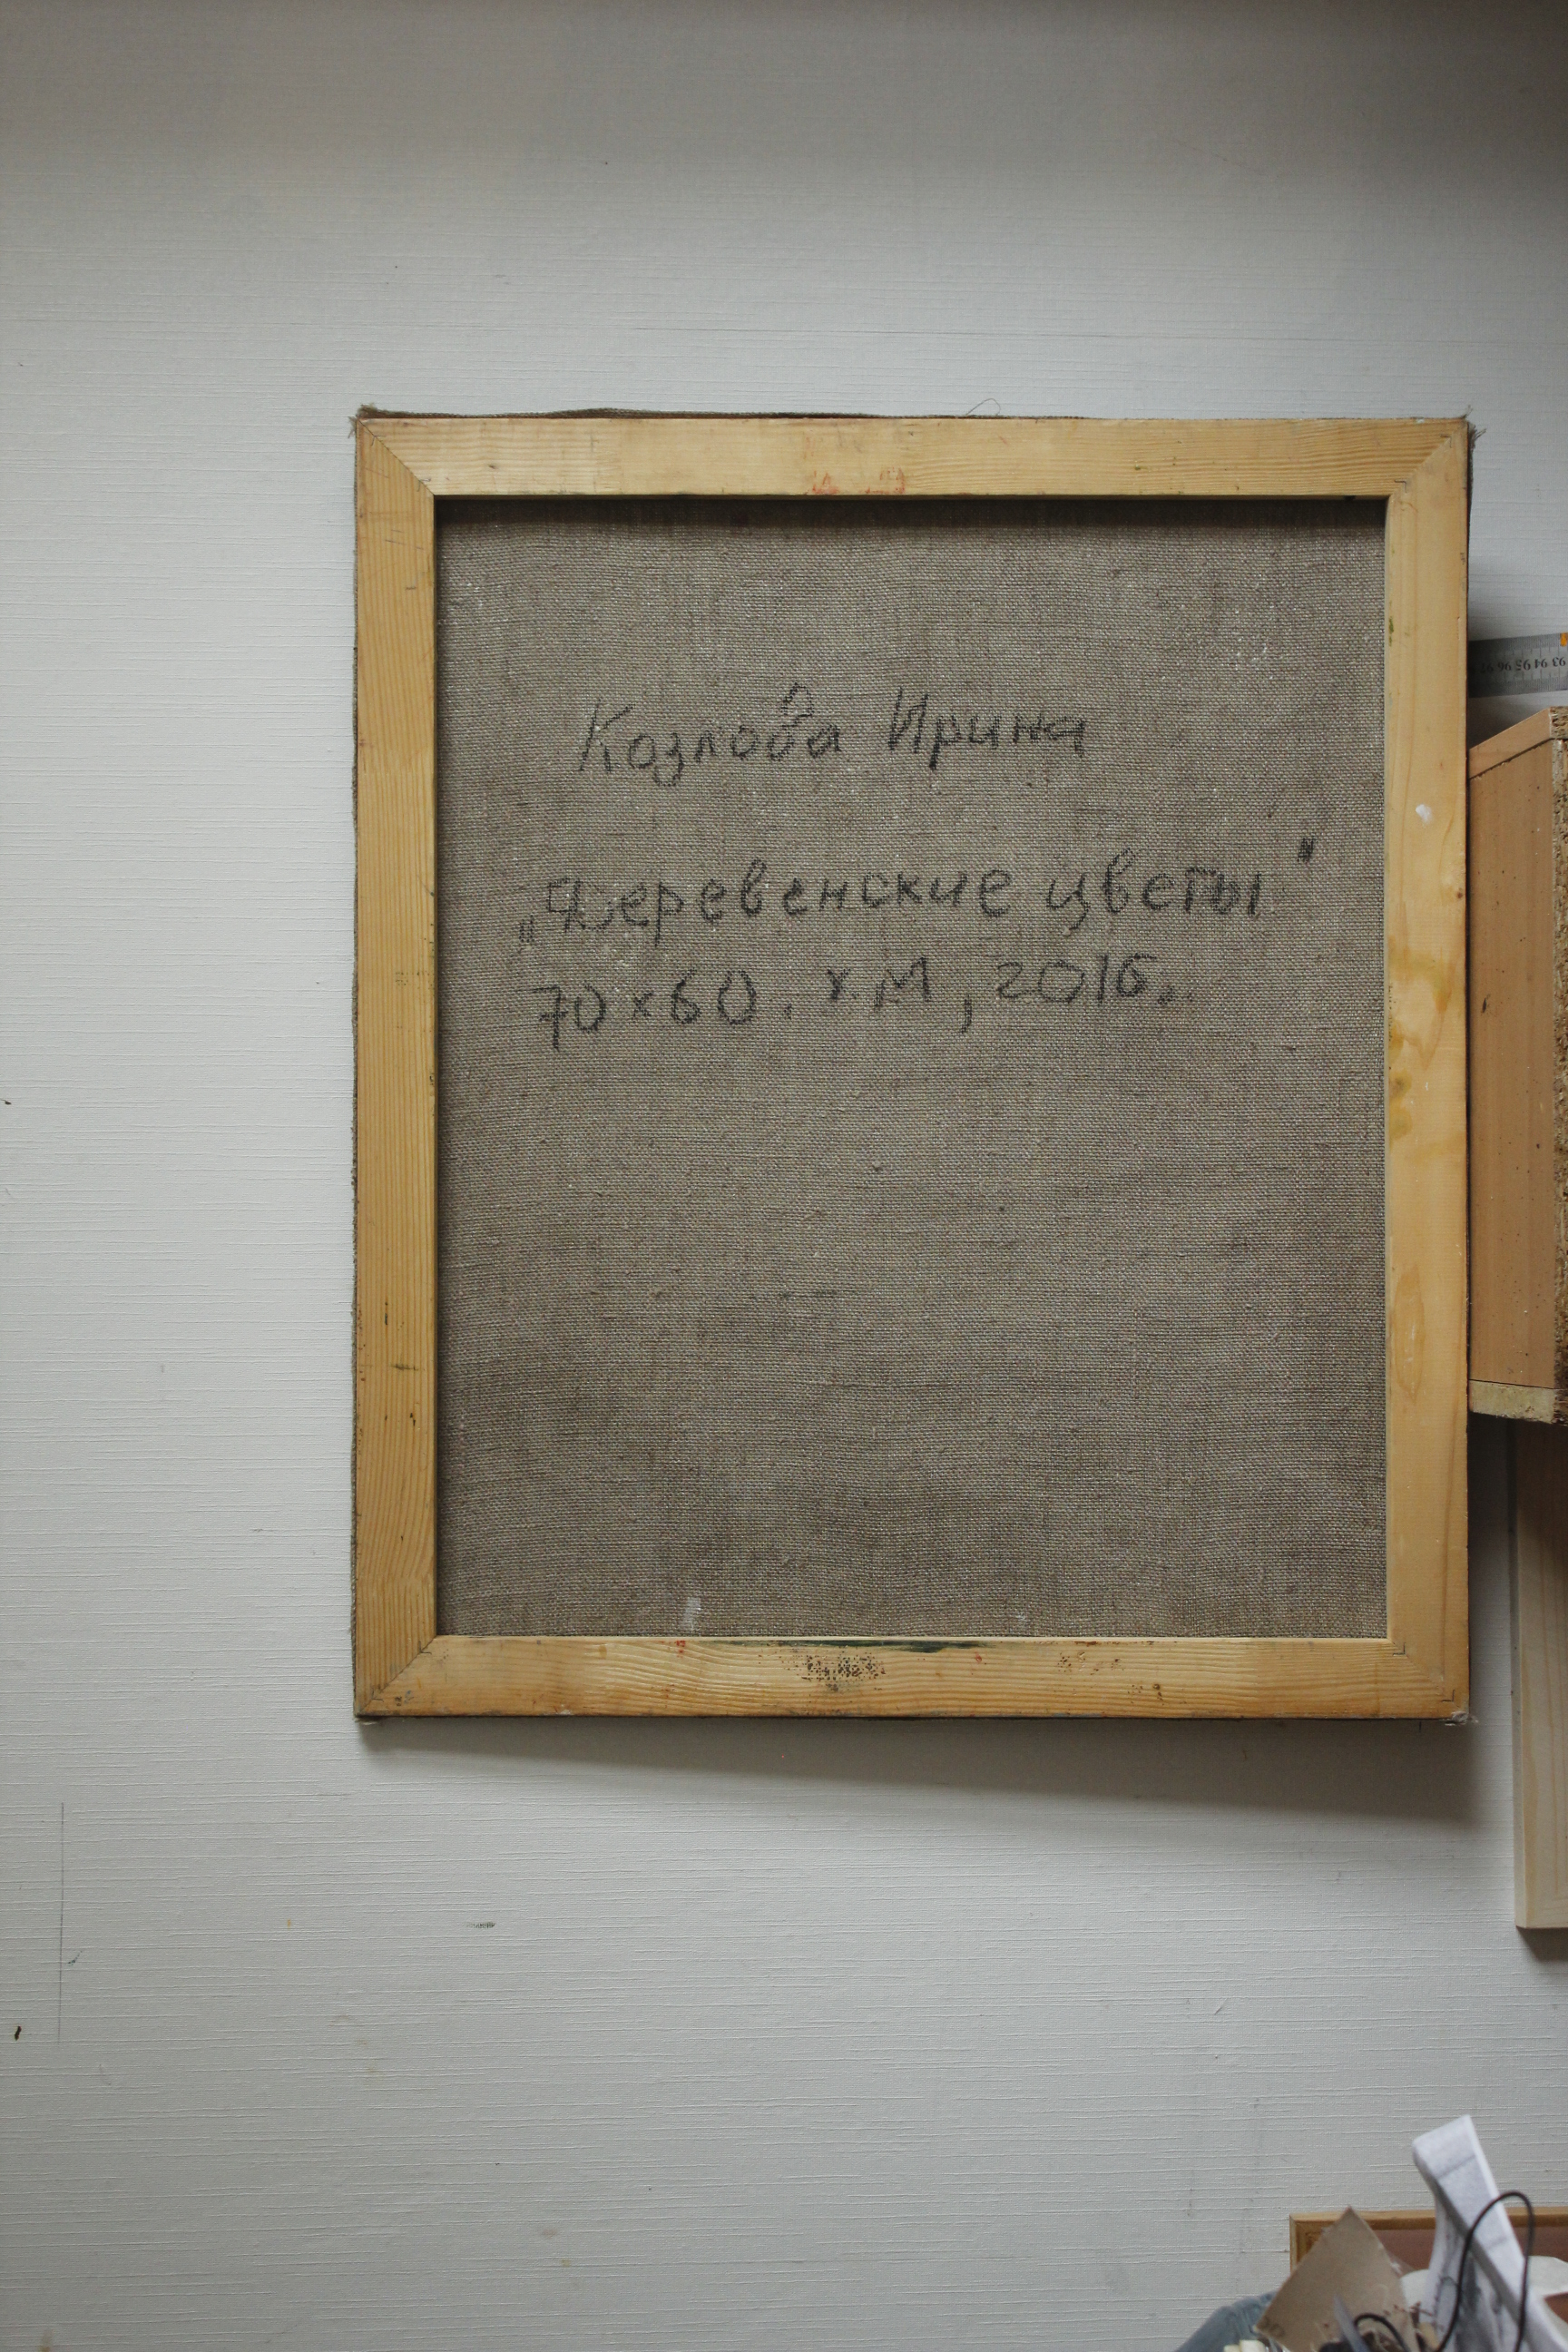 Козлова Ирина
„Деревенские цветы"
70х60. х.м, 2016.
93 94 95 96